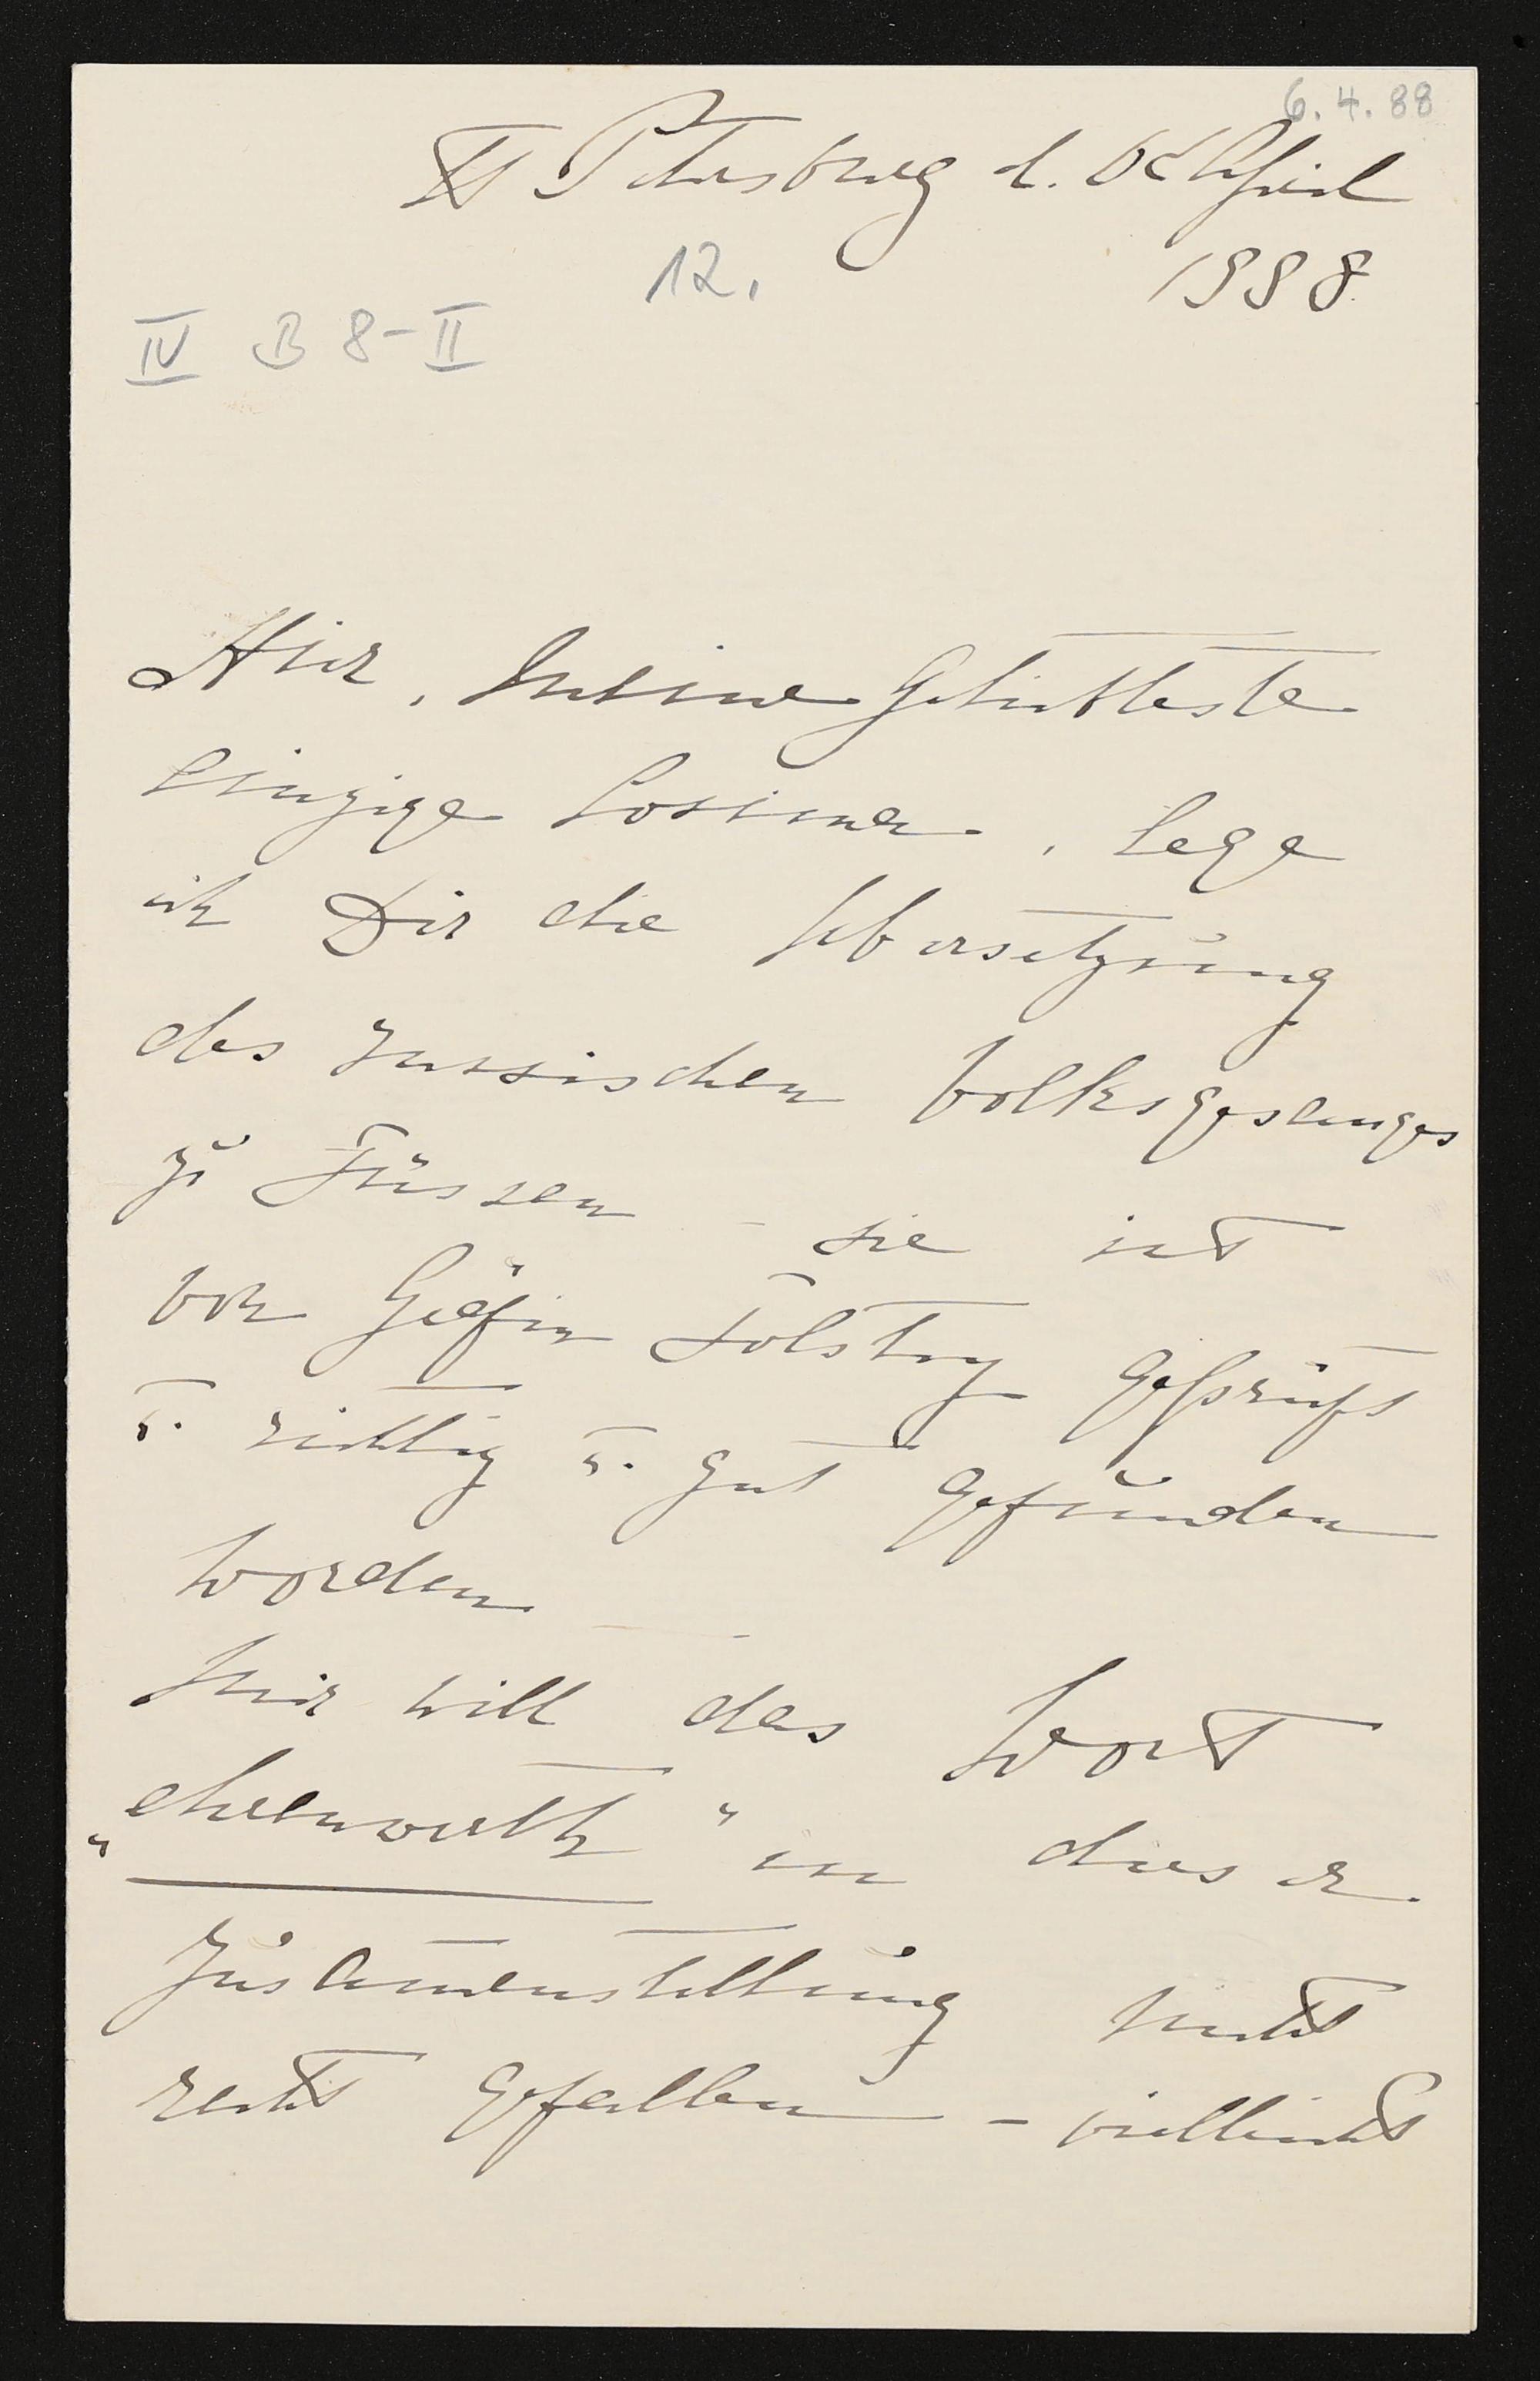 6. 4. 88
St Petersburg d. 6t April
1888
12.
IV B 8-II
Hier, meine Geliebteste
einzige Cosima, lege
ich Dir die Uebersetzung
des russischen Volksgesanges
zu Füssen – sie ist
von Gräfin Tolstoy geprüft
u. richtig u. gut gefunden
worden –
Mir will das Wort
„ehrenwerth" in dieser
Zusam̅enstellung nicht
recht gefallen – vielleicht